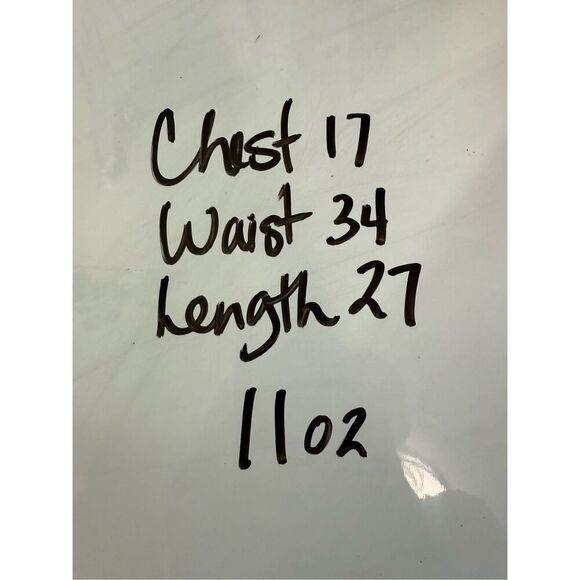 Chest 17
Waist 34
Length 27
11oz